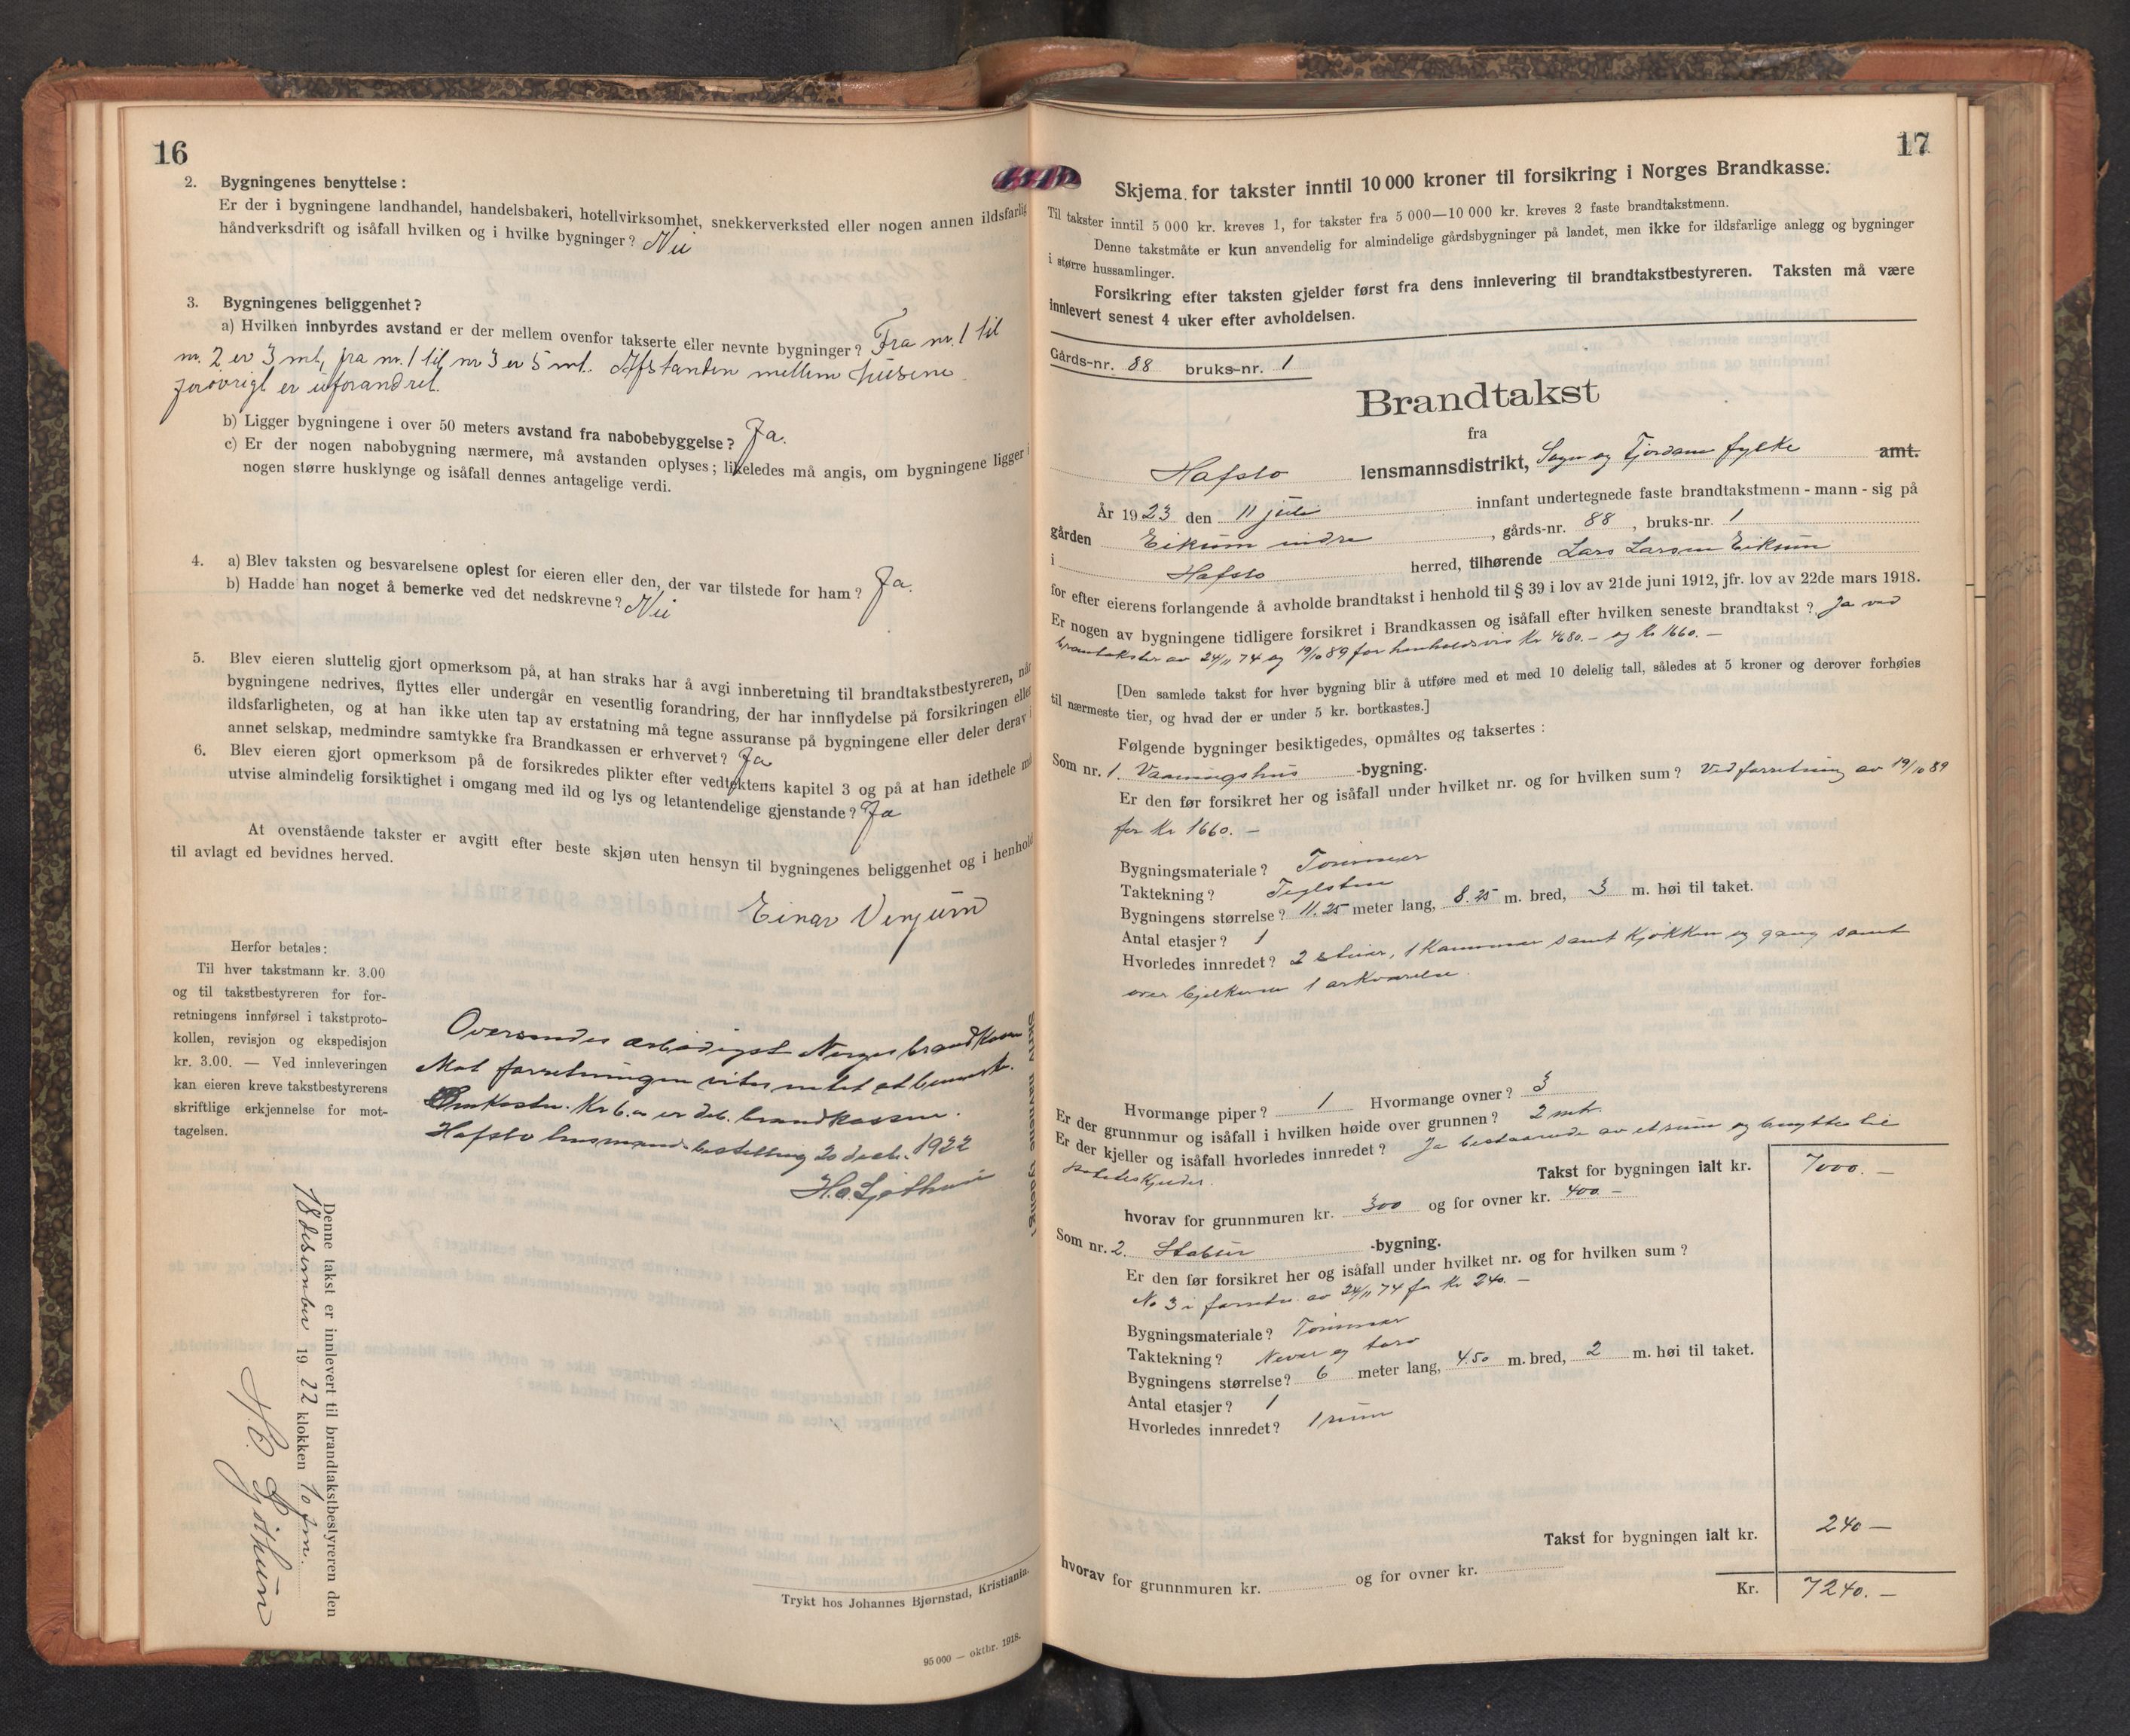 16
2. Bygningenes benyttelse:
Er der i bygningene landhandel, handelsbakeri, hotellvirksomhet, snekkerverksted eller nogen annen ildsfarlig
håndverksdrift og isåfall hvilken og i hvilke bygninger? Nei
3. Bygningenes beliggenhet?
a) Hvilken innbyrdes avstand er der mellem ovenfor takserte eller nevnte bygninger? Fra nr. 1 til
nr. 2 er 3 mt, fra nr. 1 til nr 3 er 5 mt. Afstanden mellem husene
forøvrigt er uforandret.
b) Ligger bygningene i over 50 meters avstand fra nabobebyggelse? Ja.
c) Er der nogen nabobygning nærmere, må avstanden oplyses; likeledes må angis, om bygningene ligger i
nogen større husklynge og isåfall dennes antagelige verdi.
4. a) Blev taksten og besvarelsene oplest for eieren eller den, der var tilstede for ham? Ja.
b) Hadde han noget å bemerke ved det nedskrevne? Nei
5. Blev eieren sluttelig gjort opmerksom på, at han straks har å avgi innberetning til brandtakstbestyreren, når
bygningene nedrives, flyttes eller undergår en vesentlig forandring, der har innflydelse på forsikringen eller
ildsfarligheten, og at han ikke uten tap av erstatning må tegne assuranse på bygningene eller deler derav i
annet selskap, medmindre samtykke fra Brandkassen er erhvervet? Ja
6. Blev eieren gjort opmerksom på de forsikredes plikter efter vedtektens kapitel 3 og på at han idethele må
utvise almindelig forsiktighet i omgang med ild og lys og letantendelige gjenstande? Ja
At ovenstående takster er avgitt efter beste skjøn uten hensyn til bygningenes beliggenhet og i henhold
til avlagt ed bevidnes herved.
Einar Venjum
Herfor betales:
Til hver takstmann kr. 3.00
og til takstbestyreren for for-
retningens innførsel i takstproto-
kollen, revisjon og ekspedisjon
kr. 3.00. — Ved innleveringen
kan eieren kreve takstbestyrerens
skriftlige erkjennelse for mot-
tagelsen.
Oversendes ærbødigst Norges brandkasse
Mot forretningen vites intet at bemerke.
Omkostn. Kr 6.00 er deb. brandkassen.
Hafslo lensmandsbestilling 20 decbr. 1922
H.O. Gjøthun
Denne takst er innlevert til brandtakstbestyreren den
18 desember 1922 klokken 10 fm.
H.O. Gjøthun
Trykt hos Johannes Bjørnstad, Kristiania.
95 000 — oktbr. 1918.
17
Skjema for takster inntil 10 000 kroner til forsikring i Norges Brandkasse.
Til takster inntil 5 000 kr. kreves 1, for takster fra 5 000—10 000 kr. kreves 2 faste brandtakstmenn.
Denne takstmåte er kun anvendelig for almindelige gårdsbygninger på landet, men ikke for ildsfarlige anlegg og bygninger
i større hussamlinger.
Forsikring efter taksten gjelder først fra dens innlevering til brandtakstbestyreren. Taksten må være
innlevert senest 4 uker efter avholdelsen.
Gårds-nr. 88 bruks-nr. 1
Brandtakst
fra
Hafslo lensmannsdistrikt, Sogn og Fjordane fylke amt.
År 1923 den 11 juli innfant undertegnede faste brandtakstmenn - mann - sig på
gården Eikum indre, gårds-nr. 88, bruks-nr. 1
i Hafslo herred, tilhørende Lars Larsen Eikum
for efter eierens forlangende å avholde brandtakst i henhold til § 39 i lov av 21de juni 1912, jfr. lov av 22de mars 1918.
Er nogen av bygningene tidligere forsikret i Brandkassen og isåfall efter hvilken seneste brandtakst? Ja ved
brandtakster av 24/11 74 og 19/10 89 for henholdsvis Kr 4680.- og Kr 1660.-
[Den samlede takst for hver bygning blir å utføre med et med 10 delelig tall, således at 5 kroner og derover forhøies
til nærmeste tier, og hvad der er under 5 kr. bortkastes.]
Følgende bygninger besiktigedes, opmåltes og taksertes:
Som nr. 1. Vaaningshus -bygning.
Er den før forsikret her og isåfall under hvilket nr. og for hvilken sum? Ved forretning av 19/10 89
for Kr 1660.-
Bygningsmateriale? Tømmer
Taktekning? Teglsten
Bygningens størrelse? 11.25 meter lang, 8.25 m. bred, 3 m. høi til taket.
Antal etasjer? 1
Hvorledes innredet? 2 stuer, 1 kammer samt kjøkken og gang samt
over bjelkerne 1 arkværelse.
Hvormange piper? 1 Hvormange ovner? 3
Er der grunnmur og isåfall i hvilken høide over grunnen? 2 mtr.
Er der kjeller og isåfall hvorledes innredet? Ja bestaaende av et rum og benyttes til
potetkjelder.
Takst for bygningen ialt kr. 7000.-
hvorav for grunnmuren kr. 300 og for ovner kr. 400 -
Som nr. 2. Stabur -bygning.
Er den før forsikret her og isåfall under hvilket nr. og for hvilken sum?
No 3 i forretn. av 24/11 74 for Kr 240.-
Bygningsmateriale? Tømmer
Taktekning? Never og torv
Bygningens størrelse? 6 meter lang, 4.50 m. bred, 2 m. høi til taket.
Antal etasjer? 1
Hvorledes innredet? 1 rum
Takst for bygningen ialt kr. 240 -
hvorav for grunnmuren kr. og for ovner kr.
Kr. 7240.-